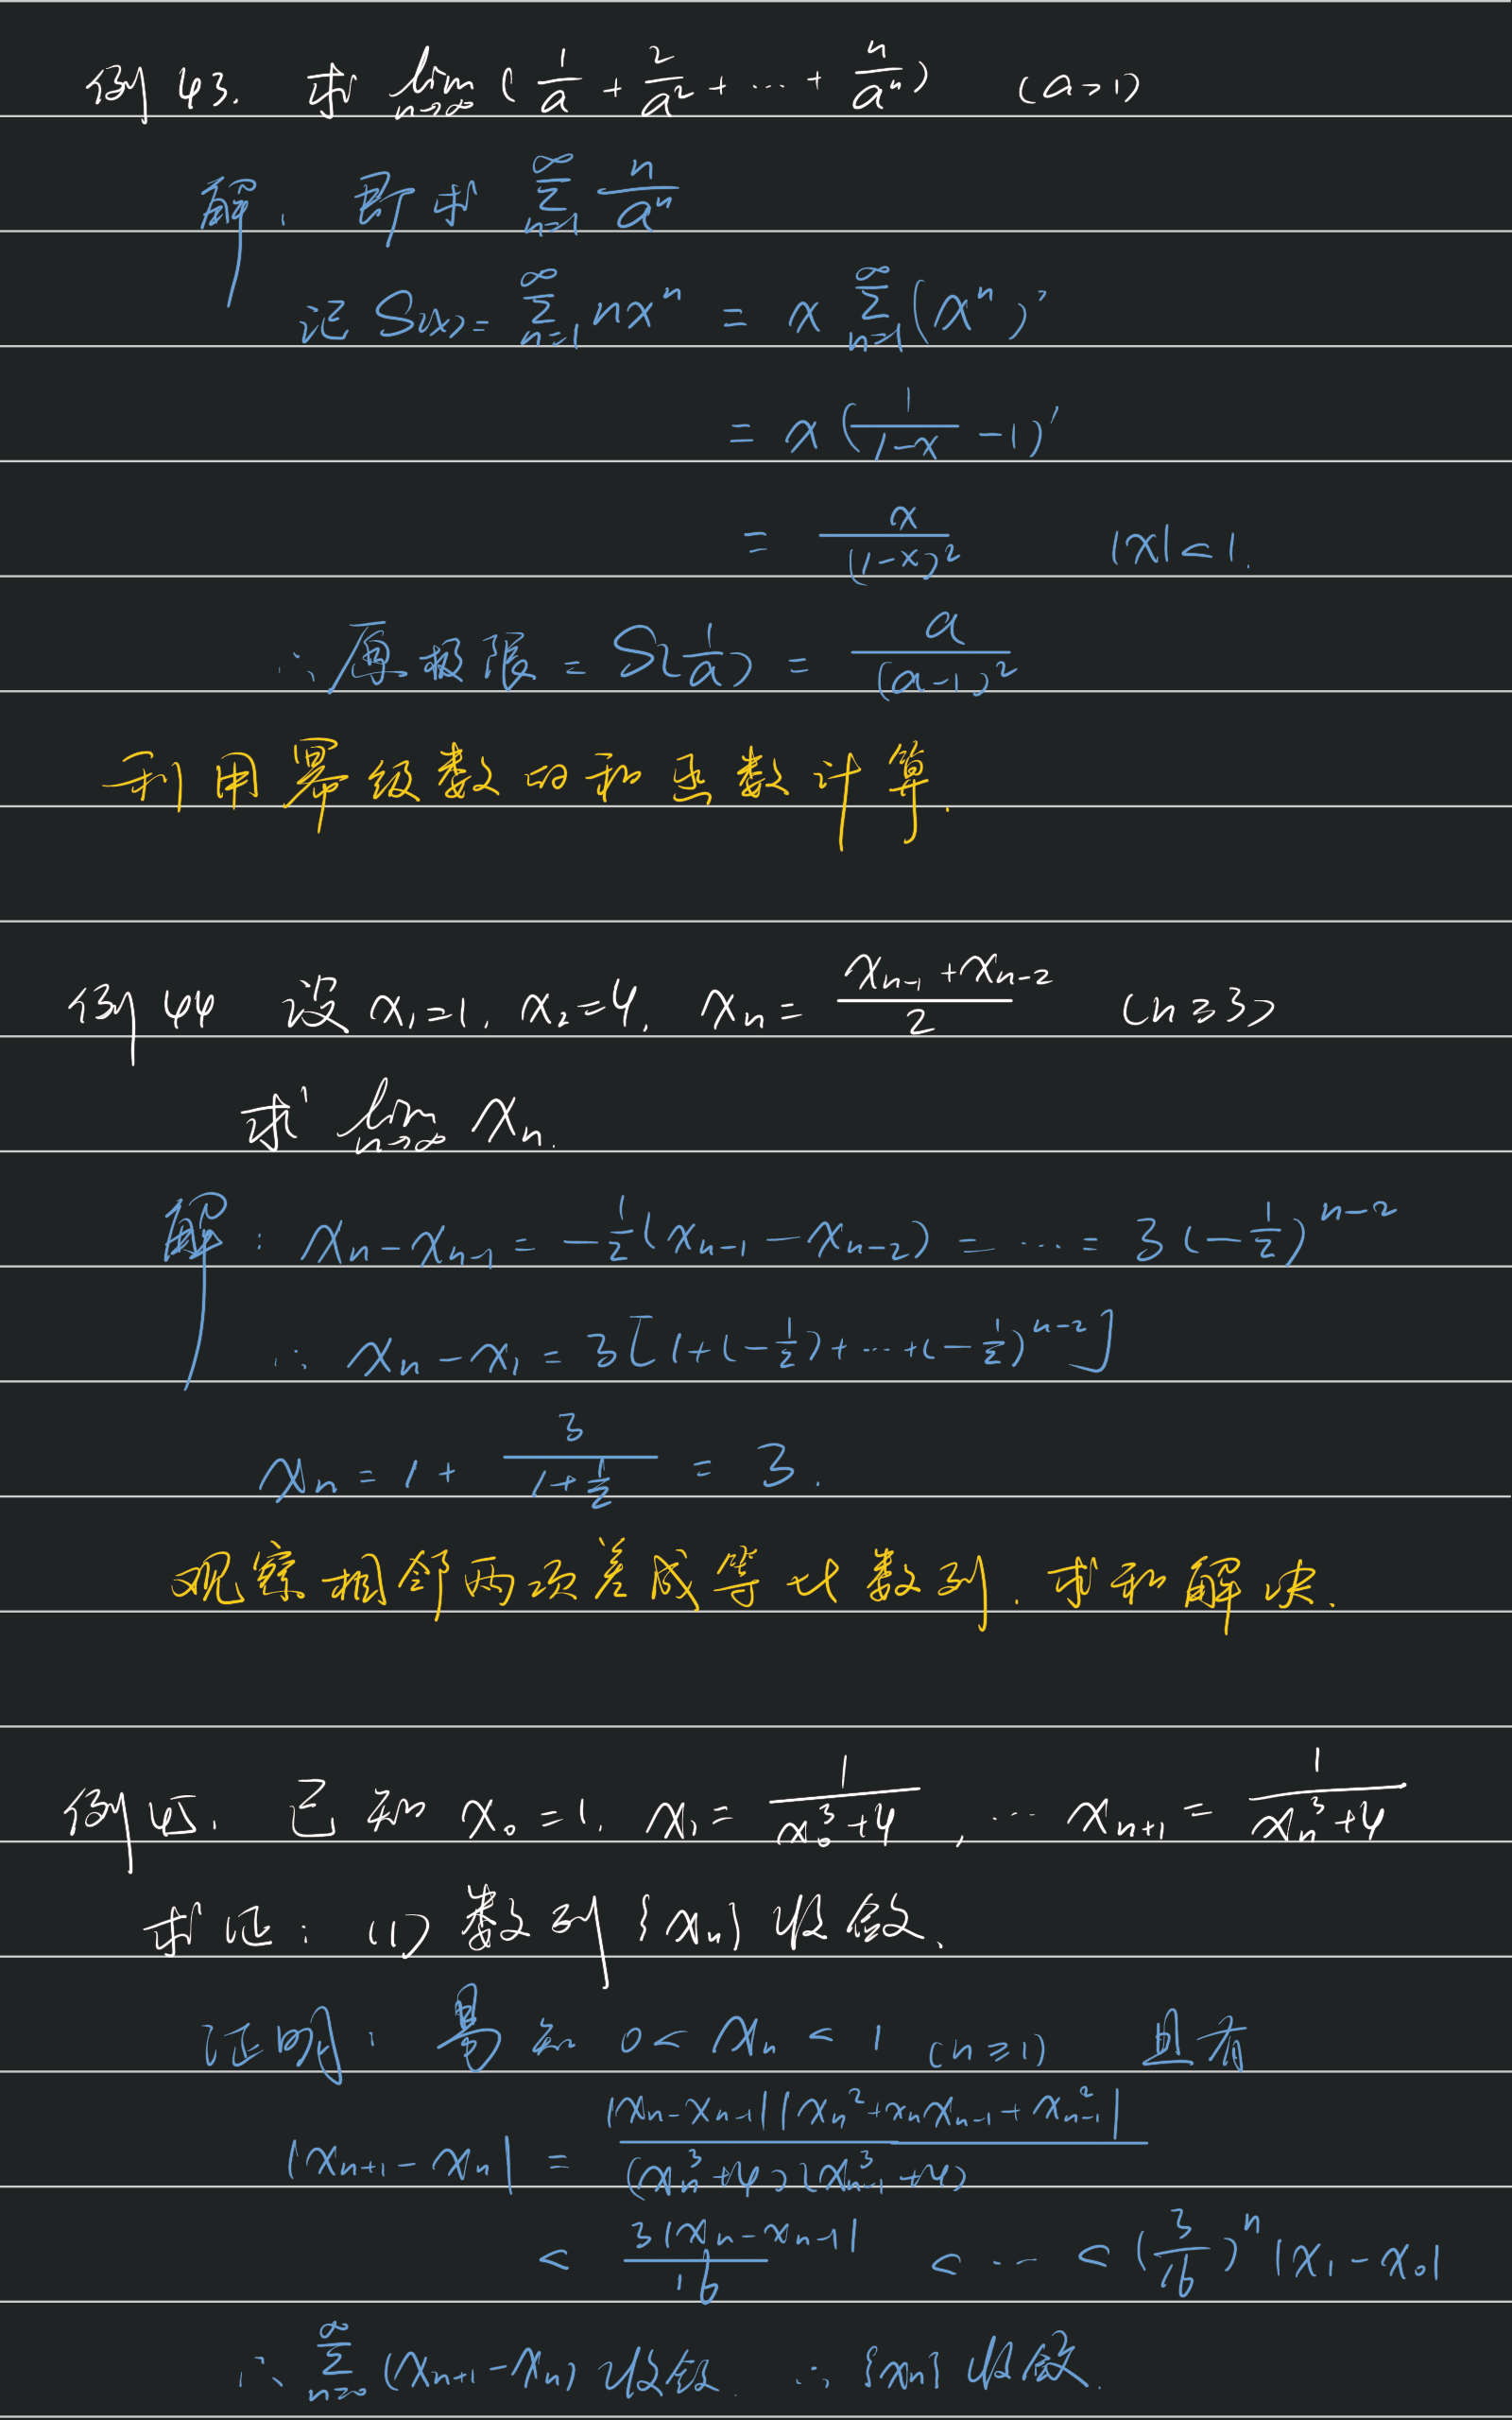 例43. 求 lim_{n→∞} (1/a + 2/a² + ⋯ + n/aⁿ) (a>1)
解: 即求 ∑_{n=1}^{∞} n/aⁿ
记 S(x) = ∑_{n=1}^{∞} nxⁿ = x ∑_{n=1}^{∞} (xⁿ)'
= x (1/(1-x) - 1)'
= x/(1-x)² |x|<1.
∴ 原极限 = S(1/a) = a/(a-1)²
利用幂级数的和函数计算.
例44 设 x₁=1, x₂=4, xₙ = (xₙ₋₁+xₙ₋₂)/2 (n≥3)
求 lim_{n→∞} xₙ.
解: xₙ - xₙ₋₁ = -1/2 (xₙ₋₁ - xₙ₋₂) = ⋯ = 3(-1/2)^{n-2}
∴ xₙ - x₁ = 3[1+(-1/2)+⋯+(-1/2)^{n-2}]
xₙ = 1 + 3/(1+1/2) = 3.
观察相邻两项差成等比数列. 求和解决.
例45. 已知 x₀=1, x₁ = 1/(x₀³+4), ⋯ xₙ₊₁ = 1/(xₙ³+4)
求证: (1) 数列{xₙ}收敛.
证明: 易知 0 < xₙ < 1 (n≥1) 且有
|xₙ₊₁ - xₙ| = |xₙ-xₙ₋₁||xₙ²+xₙxₙ₋₁+xₙ₋₁²| / (xₙ³+4)(xₙ₋₁³+4)
< 3|xₙ-xₙ₋₁|/16 < ⋯ < (3/16)ⁿ |x₁-x₀|
∴ ∑_{n=0}^{∞} (xₙ₊₁-xₙ) 收敛. ∴ {xₙ} 收敛.